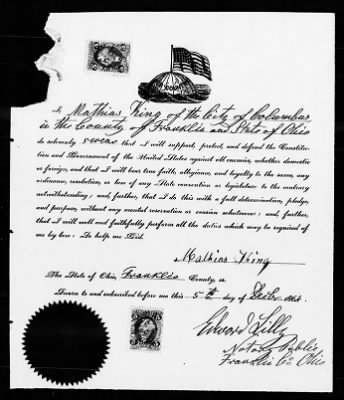 I, Mathias King of the City of Columbus
in the County of Franklin and State of Ohio
do solemnly swear that I will support, protect, and defend the Constitu-
tion and Government of the United States against all enemies, whether domestic
or foreign, and that I will bear true faith, allegiance, and loyalty to the same, any
ordinance, resolution, or law of any State convention or legislature to the contrary
notwithstanding; and, further, that I do this with a full determination, pledge,
and purpose, without any mental reservation or evasion whatsoever; and, further,
that I will well and faithfully perform all the duties which may be required of
me by law: So help me God.
Mathias King
The State of Ohio Franklin County, ss.
Sworn to and subscribed before me this 5th day of
Edward Lilly
Notary Public
Franklin Co Ohio